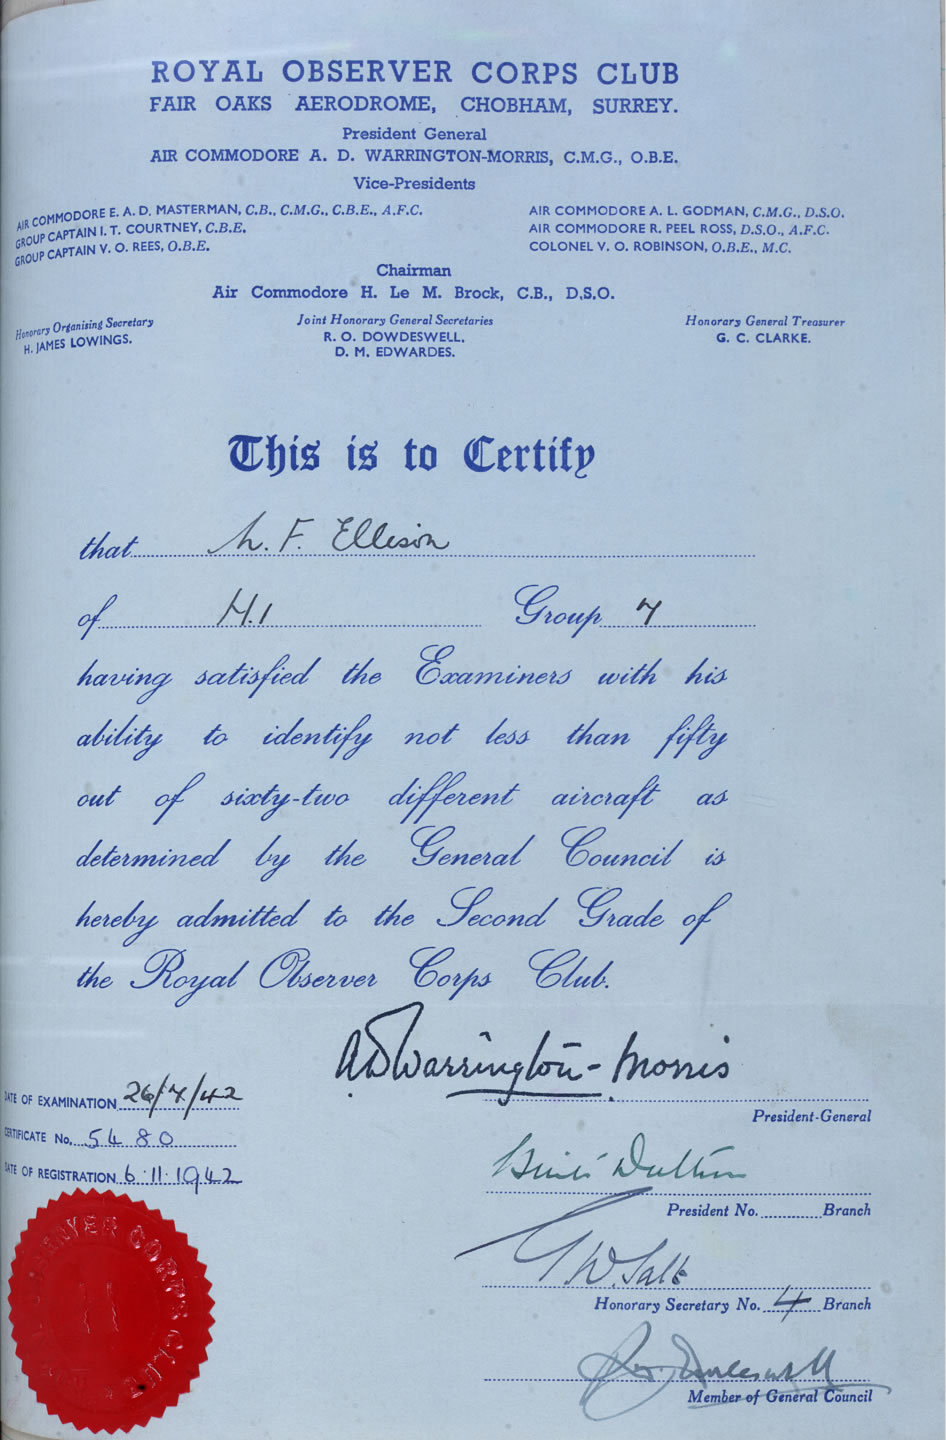 ROYAL OBSERVER CORPS CLUB
FAIR OAKS AERODROME, CHOBHAM, SURREY.
President General
AIR COMMODORE A. D. WARRINGTON-MORRIS, C.M.G., O.B.E.
Vice-Presidents
AIR COMMODORE E. A. D. MASTERMAN, C.B., C.M.G., C.B.E., A.F.C.
GROUP CAPTAIN I. T. COURTNEY, C.B.E.
GROUP CAPTAIN V. O. REES, O.B.E.
AIR COMMODORE A. L. GODMAN, C.M.G., D.S.O.
AIR COMMODORE R. PEEL ROSS, D.S.O., A.F.C.
COLONEL V. O. ROBINSON, O.B.E., M.C.
Chairman
Air Commodore H. Le M. Brock, C.B., D.S.O.
Honorary Organising Secretary
H. JAMES LOWINGS.
Joint Honorary General Secretaries
R. O. DOWDESWELL.
D. M. EDWARDES.
Honorary General Treasurer
G. C. CLARKE.
This is to Certify
that F. Ellison
of H.1 Group 7
having satisfied the Examiners with his
ability to identify not less than fifty
out of sixty-two different aircraft as
determined by the General Council is
hereby admitted to the Second Grade of
the Royal Observer Corps Club.
A D Warrington-Morris
President-General
DATE OF EXAMINATION 26/7/42
CERTIFICATE No. 5480
DATE OF REGISTRATION 6.11.1942
Dutton
President No. Branch
W. Salt
Honorary Secretary No. 4 Branch
Member of General Council
OBSERVER CORPS CLUB